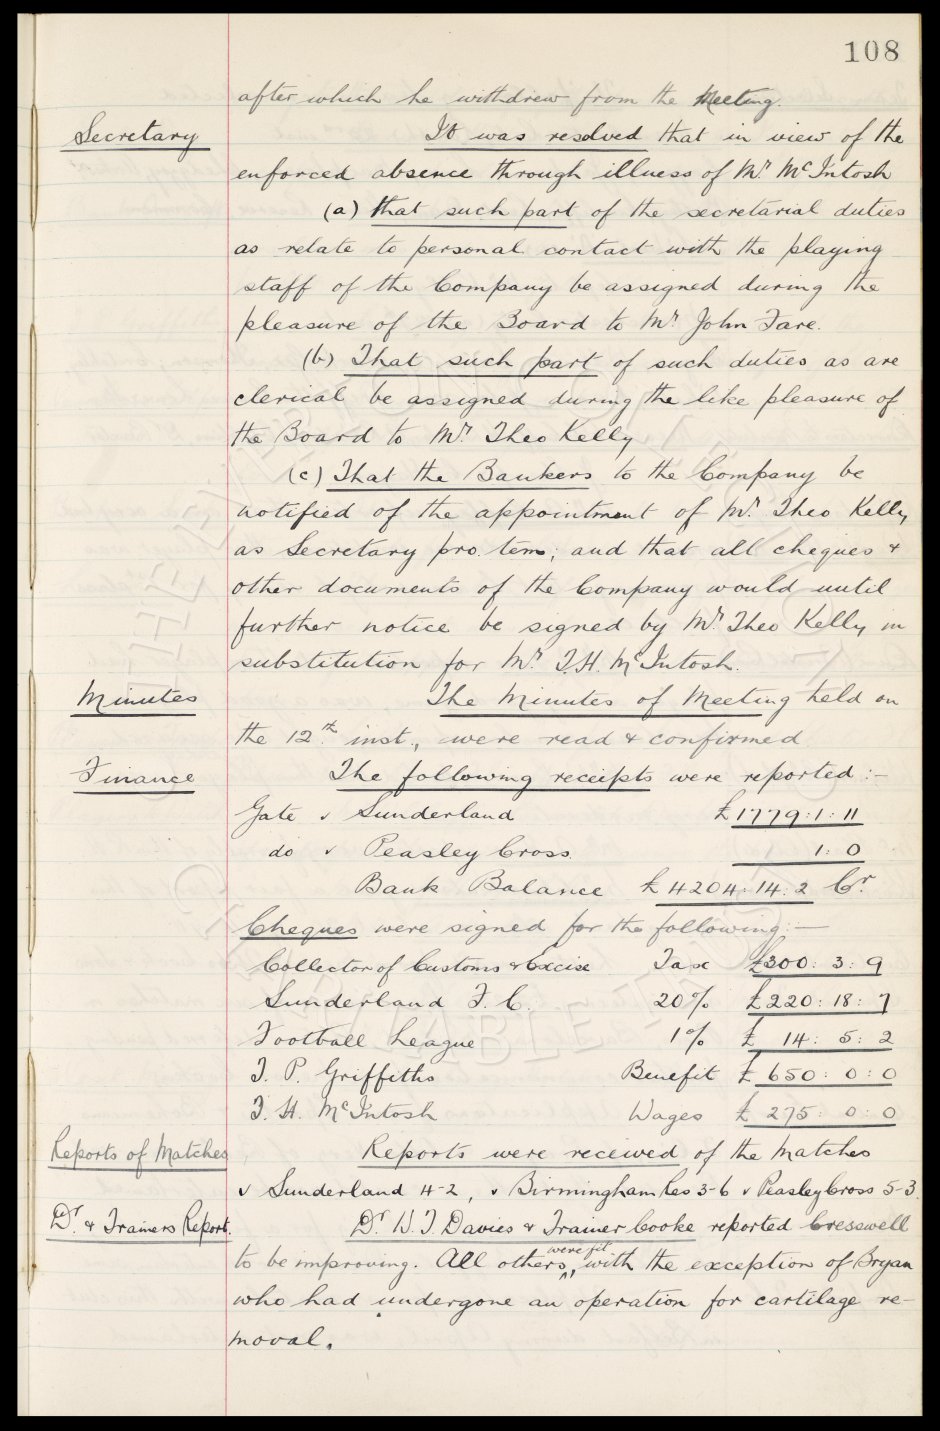 108
after which he withdrew from the Meeting.
Secretary It was resolved that in view of the
enforced absence through illness of Mr. McIntosh
(a) that such part of the secretarial duties
as relate to personal contact with the playing
staff of the Company be assigned during the
pleasure of the Board to Mr John Fare.
(b) That such part of such duties as are
clerical be assigned during the like pleasure of
the Board to Mr. Theo Kelly
(c) That the Bankers to the Company be
notified of the appointment of Mr. Theo Kelly,
as Secretary pro. tem; and that all cheques &
other documents of the Company would until
further notice be signed by Mr. Theo Kelly in
substitution for Mr. T.H. McIntosh.
Minutes The Minutes of Meeting held on
the 12th inst., were read & confirmed
Finance The following receipts were reported :-
Gate v Sunderland £1779:1:11
do v Peasley Cross. 1:0
Bank Balance £4204:14:2 Cr.
Cheques were signed for the following :-
Collector of Customs & Excise Tax £300:3:9
Sunderland F.C. 20% £220:18:7
Football League 1% £14:5:2
T. P. Griffiths Benefit £650:0:0
T. H. McIntosh Wages £275:0:0
Reports of Matches Reports were received of the Matches
v Sunderland 4-2, v Birmingham Res 3-6 v Peasley Cross 5-3.
Dr. & Trainers Report. Dr. W. J. Davies & Trainer Cooke reported Cresswell
to be improving. All others, were fit, with the exception of Bryan
who had undergone an operation for cartilage re-
moval.